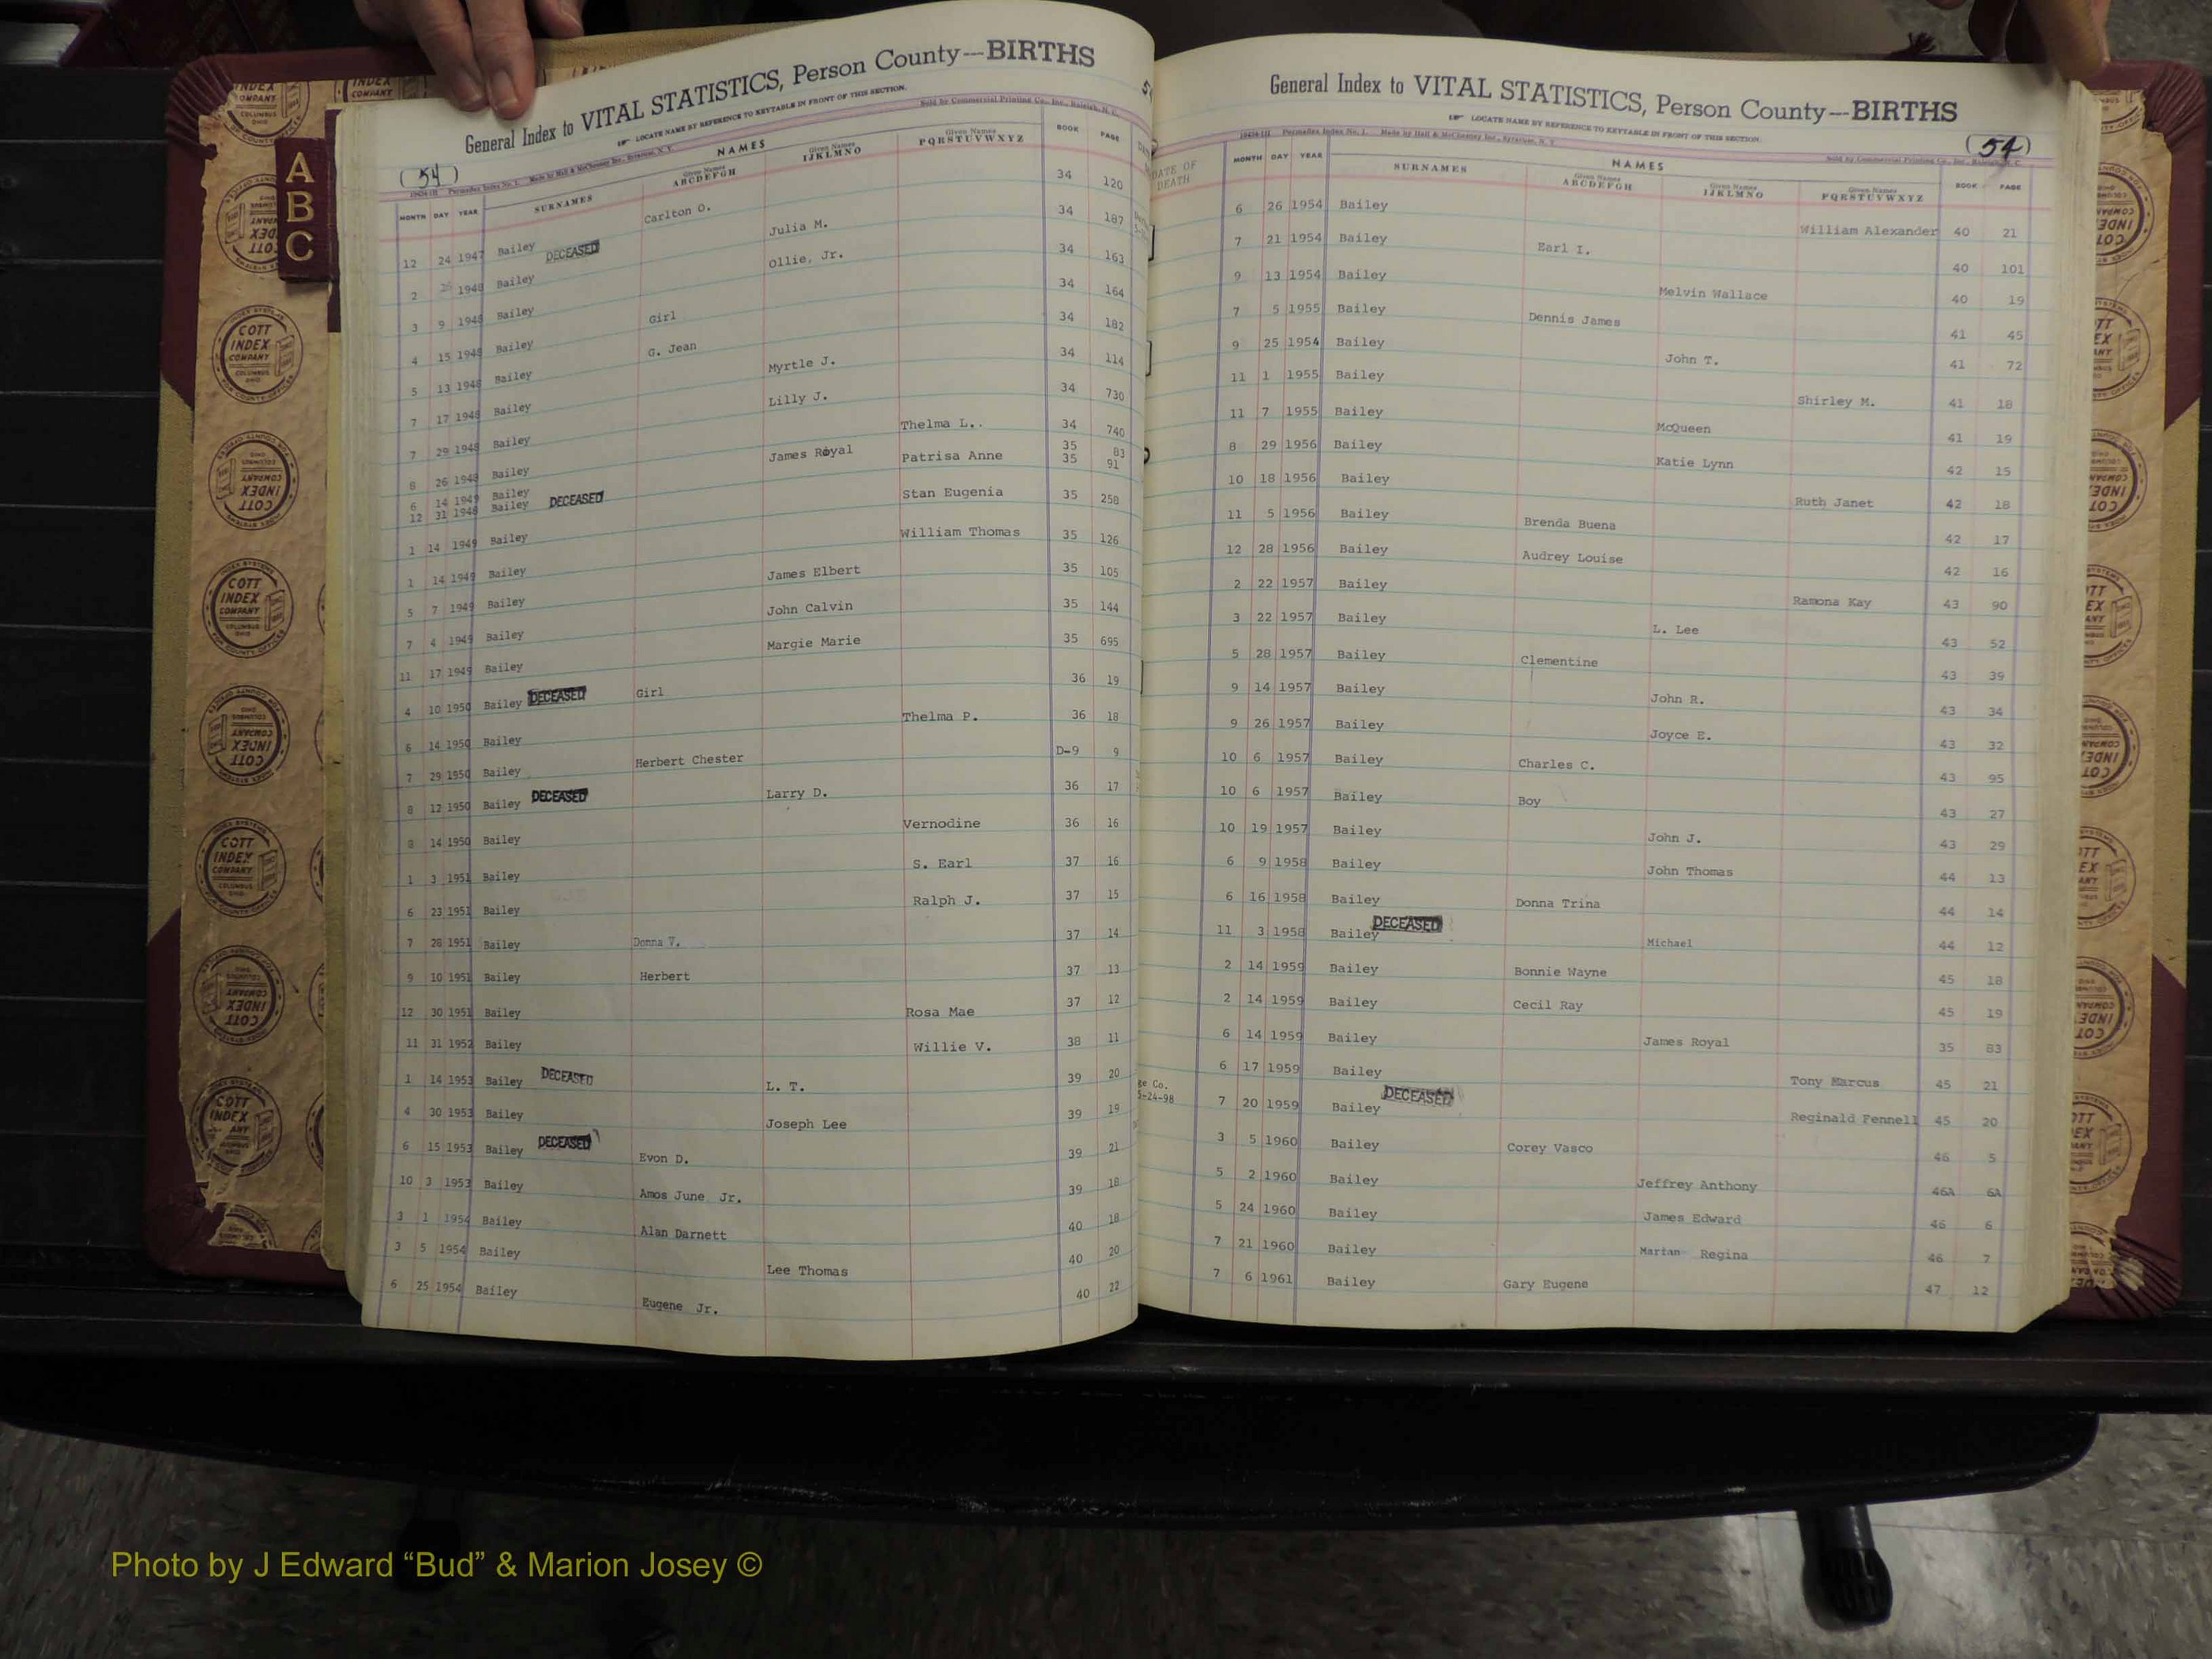 General Index to VITAL STATISTICS, Person County---BIRTHS
LOCATE NAME BY REFERENCE TO KEYTABLE IN FRONT OF THIS SECTION.
Sold by Commercial Printing Co., Inc., Raleigh, N. C.
(54)
Made by Hall & McChesney Inc., Syracuse, N. Y.
NAMES
MONTH DAY YEAR SURNAMES Given Names ABCDEFGH Given Names IJKLMNO Given Names PQRSTUVWXYZ BOOK PAGE
12 24 1947 Bailey DECEASED Carlton O. 34 120
2 26 1948 Bailey Julia M. 34 187
3 9 1948 Bailey Ollie, Jr. 34 163
4 15 1948 Bailey Girl 34 164
5 13 1948 Bailey G. Jean 34 182
7 17 1948 Bailey Myrtle J. 34 114
7 29 1948 Bailey Lilly J. 34 730
8 26 1948 Bailey Thelma L. 34 740
6 14 1949 Bailey James Royal 35 83
12 31 1948 Bailey DECEASED Patrisa Anne 35 91
1 14 1949 Bailey Stan Eugenia 35 258
1 14 1949 Bailey William Thomas 35 126
5 7 1949 Bailey James Elbert 35 105
7 4 1949 Bailey John Calvin 35 144
11 17 1949 Bailey Margie Marie 35 695
4 10 1950 Bailey DECEASED Girl 36 19
6 14 1950 Bailey Thelma P. 36 18
7 29 1950 Bailey Herbert Chester D-9 9
8 12 1950 Bailey DECEASED Larry D. 36 17
8 14 1950 Bailey Vernodine 36 16
1 3 1951 Bailey S. Earl 37 16
6 23 1951 Bailey Ralph J. 37 15
7 28 1951 Bailey Donna V. 37 14
9 10 1951 Bailey Herbert 37 13
12 30 1951 Bailey Rosa Mae 37 12
11 31 1952 Bailey Willie V. 38 11
1 14 1953 Bailey DECEASED L. T. 39 20
4 30 1953 Bailey Joseph Lee 39 19
6 15 1953 Bailey DECEASED Evon D. 39 21
10 3 1953 Bailey Amos June Jr. 39 18
3 1 1954 Bailey Alan Darnett 40 18
3 5 1954 Bailey Lee Thomas 40 20
6 25 1954 Bailey Eugene Jr. 40 22
General Index to VITAL STATISTICS, Person County---BIRTHS
LOCATE NAME BY REFERENCE TO KEYTABLE IN FRONT OF THIS SECTION.
(54)
Permadex Index No. 1. Made by Hall & McChesney Inc., Syracuse, N. Y.
Sold by Commercial Printing Co., Inc., Raleigh, N. C.
DATE OF DEATH
NAMES
MONTH DAY YEAR SURNAMES Given Names ABCDEFGH Given Names IJKLMNO Given Names PQRSTUVWXYZ BOOK PAGE
6 26 1954 Bailey William Alexander 40 21
7 21 1954 Bailey Earl I. 40 101
9 13 1954 Bailey Melvin Wallace 40 19
7 5 1955 Bailey Dennis James 41 45
9 25 1954 Bailey John T. 41 72
11 1 1955 Bailey Shirley M. 41 18
11 7 1955 Bailey McQueen 41 19
8 29 1956 Bailey Katie Lynn 42 15
10 18 1956 Bailey Ruth Janet 42 18
11 5 1956 Bailey Brenda Buena 42 17
12 28 1956 Bailey Audrey Louise 42 16
2 22 1957 Bailey Ramona Kay 43 90
3 22 1957 Bailey L. Lee 43 52
5 28 1957 Bailey Clementine 43 39
9 14 1957 Bailey John R. 43 34
9 26 1957 Bailey Joyce E. 43 32
10 6 1957 Bailey Charles C. 43 95
10 6 1957 Bailey Boy 43 27
10 19 1957 Bailey John J. 43 29
6 9 1958 Bailey John Thomas 44 13
6 16 1958 Bailey Donna Trina 44 14
11 3 1958 Bailey DECEASED Michael 44 12
2 14 1959 Bailey Bonnie Wayne 45 18
2 14 1959 Bailey Cecil Ray 45 19
6 14 1959 Bailey James Royal 35 83
6 17 1959 Bailey Tony Marcus 45 21
5-24-98 7 20 1959 Bailey DECEASED Reginald Fennell 45 20
3 5 1960 Bailey Corey Vasco 46 5
5 2 1960 Bailey Jeffrey Anthony 46A 6A
5 24 1960 Bailey James Edward 46 6
7 21 1960 Bailey Marian Regina 46 7
7 6 1961 Bailey Gary Eugene 47 12
A
B
C
COTT INDEX COMPANY
COLUMBUS OHIO
INDEX SYSTEMS FOR COUNTY OFFICES
Photo by J Edward “Bud” & Marion Josey ©